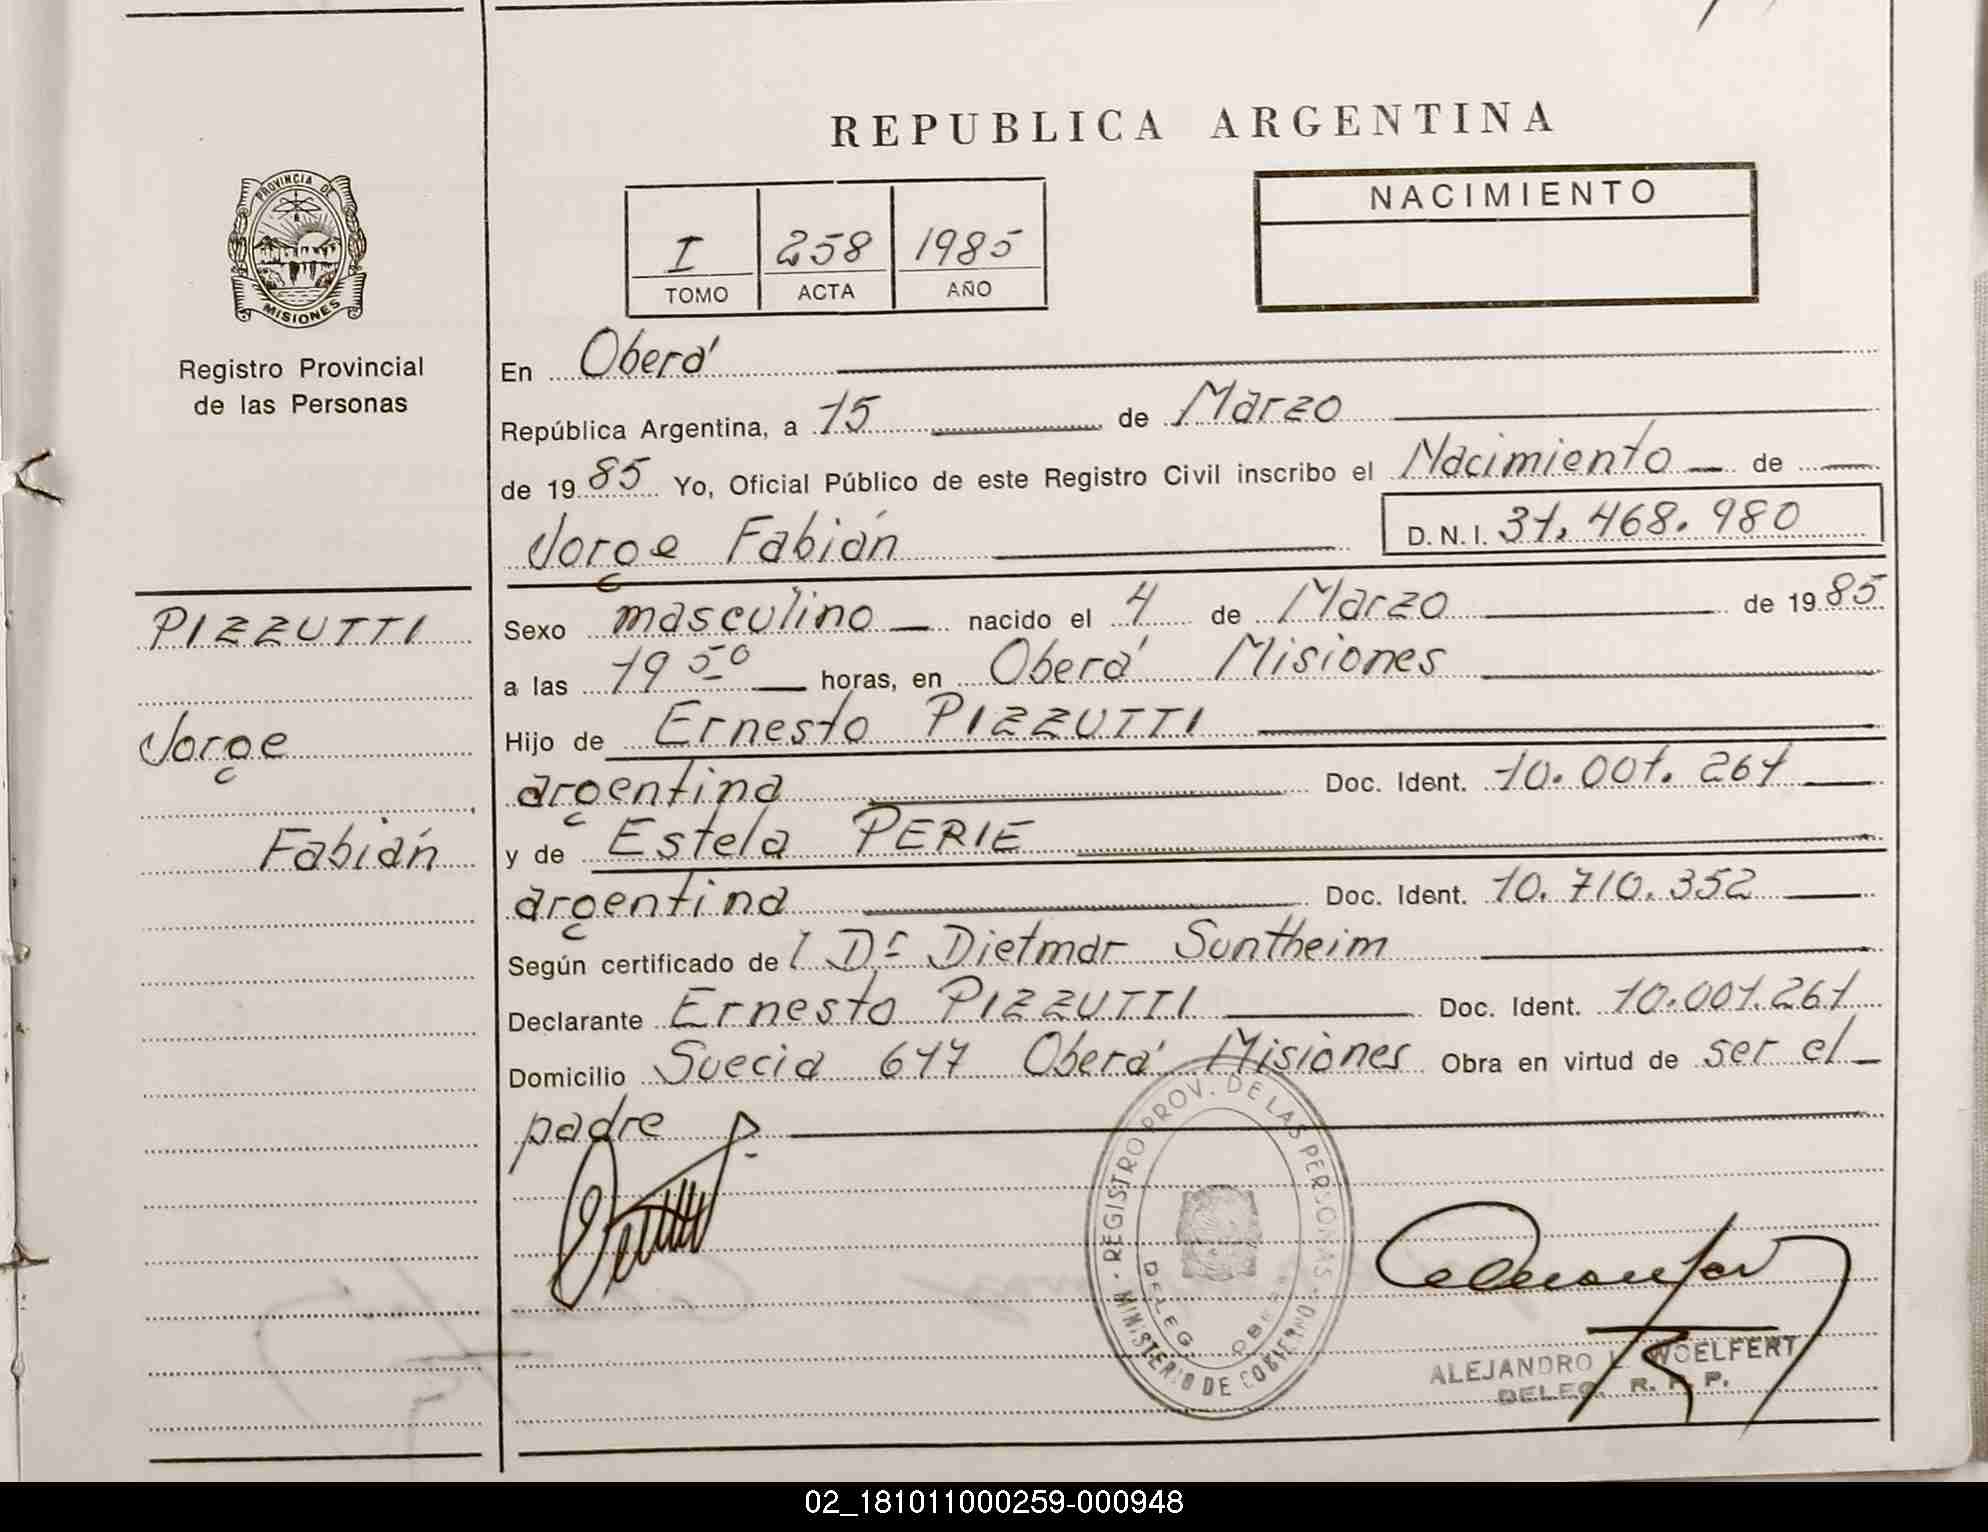 REPUBLICA ARGENTINA
PROVINCIA DE
MISIONES
Registro Provincial
de las Personas
I 258 1985
TOMO ACTA AÑO
NACIMIENTO
En Oberá
República Argentina, a 15 de Marzo
de 1985 Yo, Oficial Público de este Registro Civil inscribo el Nacimiento de
Jorge Fabián D. N. I. 31.468.980
PIZZUTTI
Jorge
Fabián
Sexo masculino nacido el 4 de Marzo de 1985
a las 19 50 horas, en Oberá Misiones
Hijo de Ernesto PIZZUTTI
argentina Doc. Ident. 10.001.261
y de Estela PERIE
argentina Doc. Ident. 10.710.352
Según certificado de l Dr Dietmar Suntheim
Declarante Ernesto PIZZUTTI Doc. Ident. 10.001.261
Domicilio Suecia 617 Oberá Misiones Obra en virtud de ser el
padre
REGISTRO PROV. DE LAS PERSONAS
MINISTERIO DE GOBIERNO
DELEG. OBERA
ALEJANDRO L. WOELFERT
DELEG. R. P. P.
02_181011000259-000948